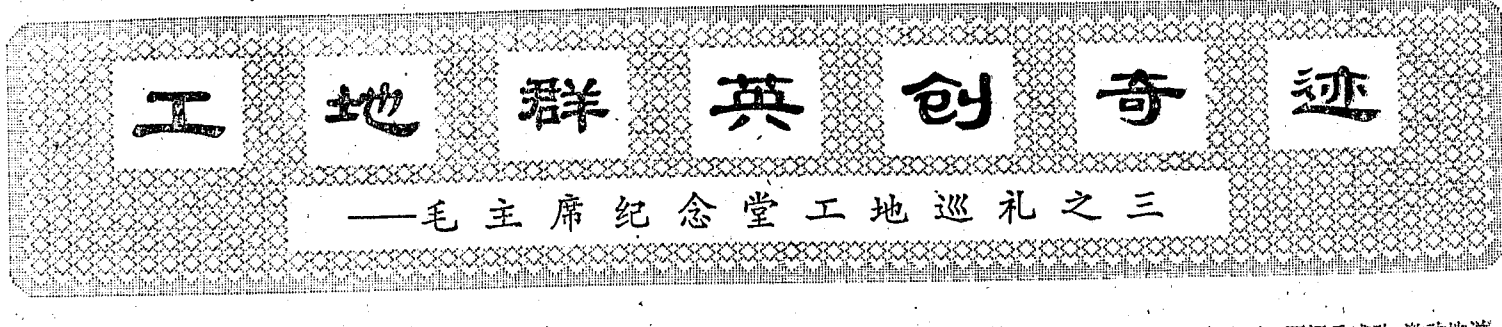 工地群英创奇迹
——毛主席纪念堂工地巡礼之三